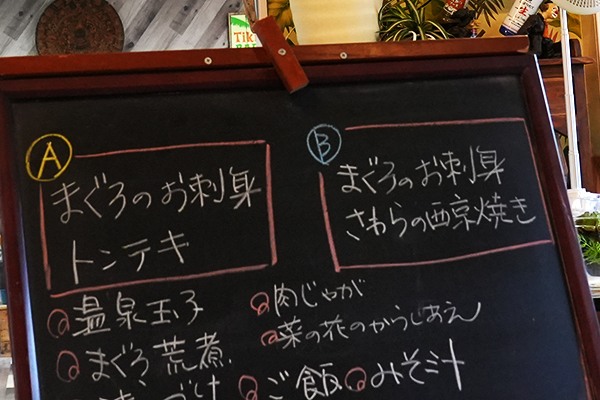 A
まぐろのお刺身
トンテキ
B
まぐろのお刺身
さわらの西京焼き
温泉玉子
肉じゃが
まぐろ荒煮
菜の花のからしあえ
づけ
ご飯
みそ汁
TiKi